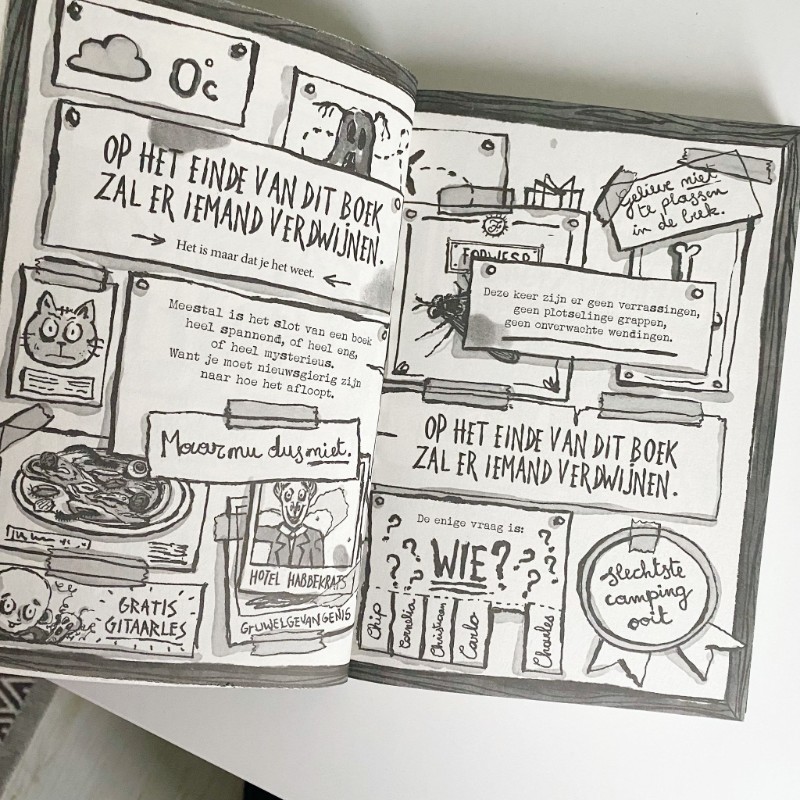 0°C
OP HET EINDE VAN DIT BOEK
ZAL ER IEMAND VERDWIJNEN.
Het is maar dat je het weet.
Meestal is het slot van een boek
heel spannend, of heel eng,
of heel mysterieus.
Want je moet nieuwsgierig zijn
naar hoe het afloopt.
Maar nu dus niet.
HOTEL HABBEKRATS
GRUWELGEVANGENIS
GRATIS
GITAARLES
Gelieve niet
te plassen
in de beek.
Deze keer zijn er geen verrassingen,
geen plotselinge grappen,
geen onverwachte wendingen.
OP HET EINDE VAN DIT BOEK
ZAL ER IEMAND VERDWIJNEN.
De enige vraag is:
WIE?
Chip
Cornelia
Christiaan
Carlo
Charles
slechtste
camping
ooit